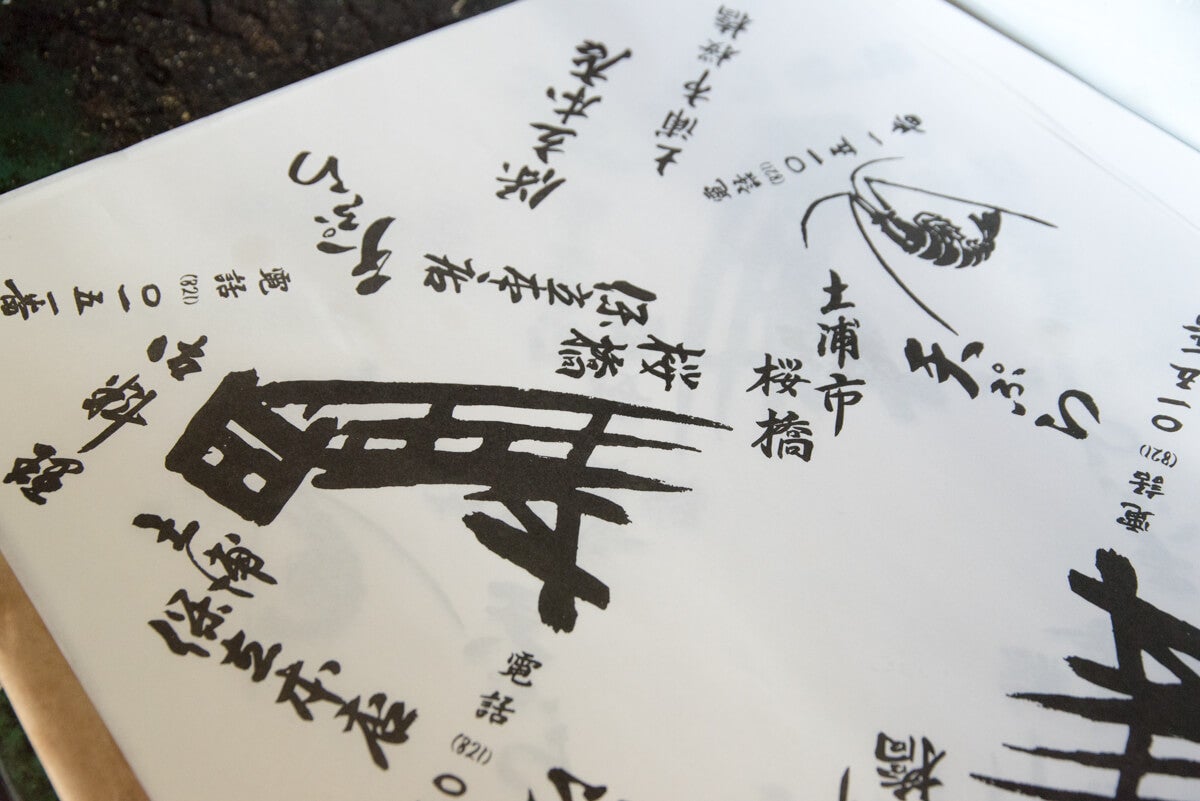 保立本店
土浦市桜橋
電話(821)〇一五一番
天ぷら
保立本店
桜橋
電話(821)〇一五一番
土浦市
桜橋
天ぷら
電話(821)〇
土浦
保立本店
電話(821)〇
橋